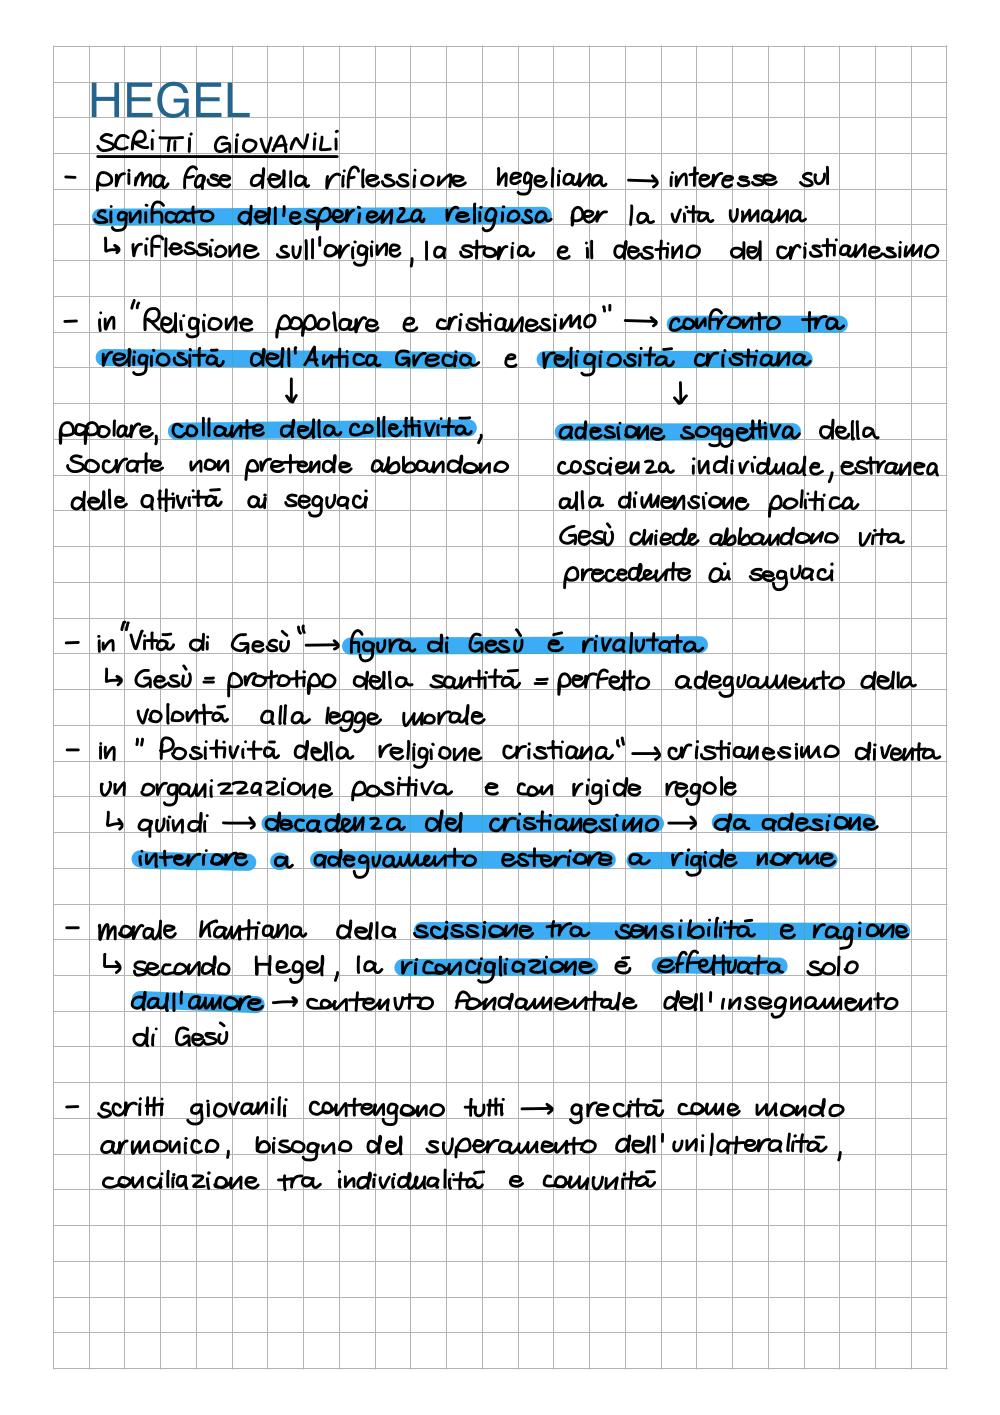 HEGEL
SCRITTI GIOVANILI
- prima fase della riflessione hegeliana → interesse sul
significato dell'esperienza religiosa per la vita umana
↳ riflessione sull'origine, la storia e il destino del cristianesimo
- in "Religione popolare e cristianesimo" → confronto tra
religiosità dell'Antica Grecia e religiosità cristiana
↓ ↓
popolare, collante della collettività,
Socrate non pretende abbandono
delle attività ai seguaci
adesione soggettiva della
coscienza individuale, estranea
alla dimensione politica
Gesù chiede abbandono vita
precedente ai seguaci
- in "Vita di Gesù" → figura di Gesù è rivalutata
↳ Gesù = prototipo della santità = perfetto adeguamento della
volontà alla legge morale
- in "Positività della religione cristiana" → cristianesimo diventa
un organizzazione positiva e con rigide regole
↳ quindi → decadenza del cristianesimo → da adesione
interiore a adeguamento esteriore a rigide norme
- morale Kantiana della scissione tra sensibilità e ragione
↳ secondo Hegel, la riconcigliazione è effettuata solo
dall'amore → contenuto fondamentale dell'insegnamento
di Gesù
- scritti giovanili contengono tutti → grecità come mondo
armonico, bisogno del superamento dell'unilateralità,
conciliazione tra individualità e comunità